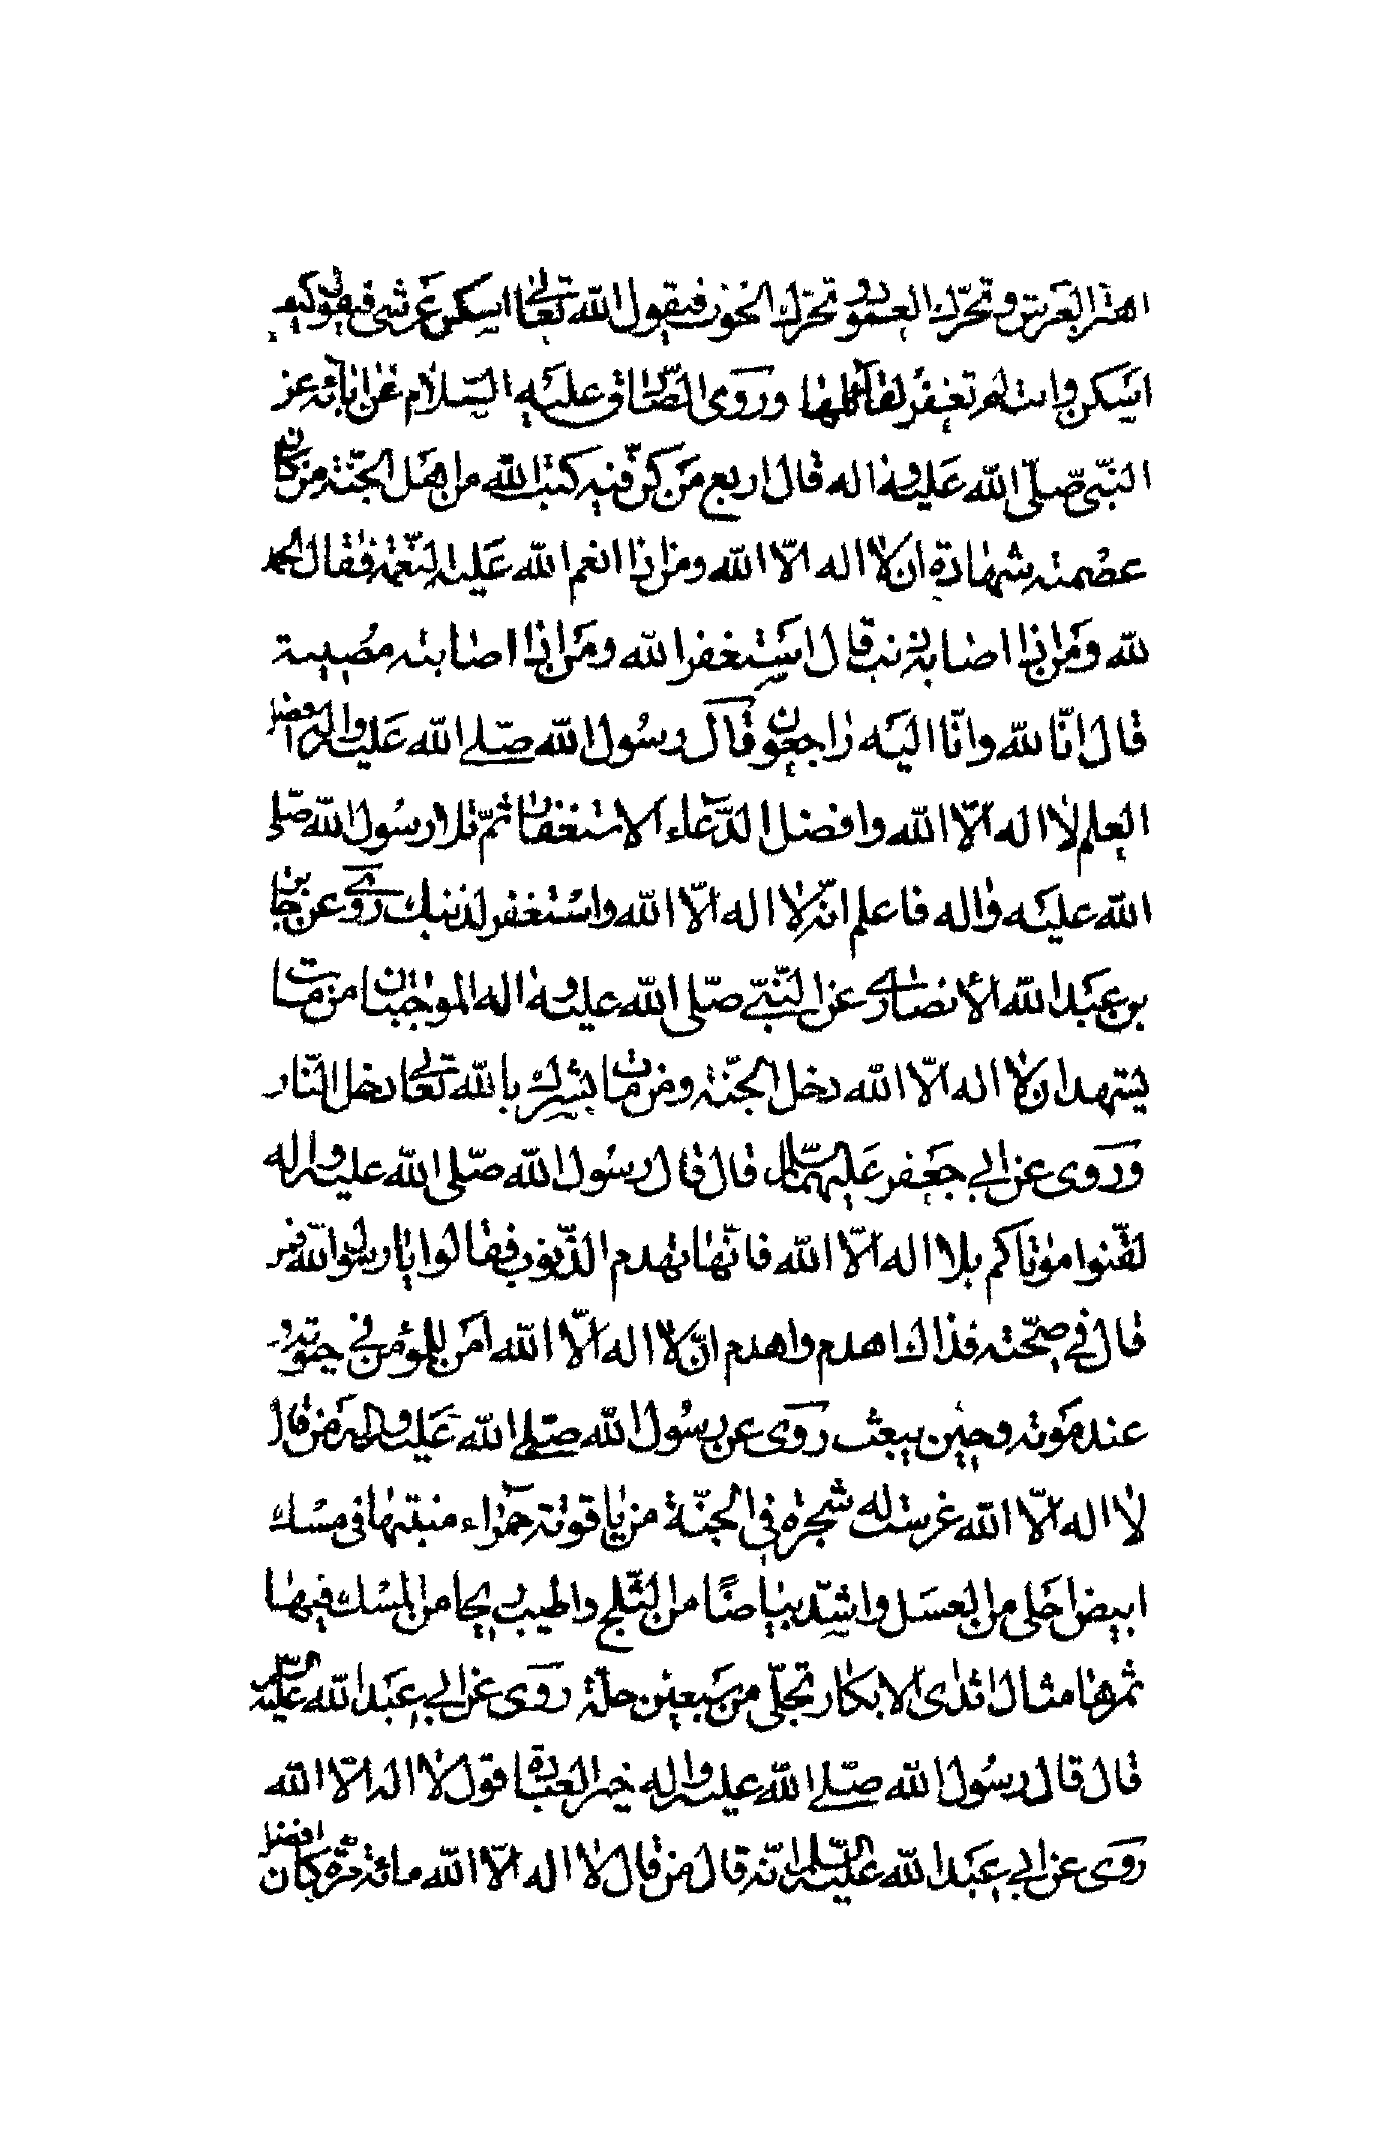 اهتز العرش وتحرّك العمود وتحرّك الحوت فيقول الله تعالى اسكن عرشى فيقول كيف
اسكن وانت لم تغفر لقائلها وروى الصّادق عليه السلام عن ابائه عن
النبّى صلّى الله عليه واله قال اربع من كنّ فيه كتبه الله من اهل الجنّة من كان
عصمته شهادة ان لا اله الّا الله ومن اذا انعم الله عليه النّعمة فقال الحمد
لله ومن اذا اصابه ذنب قال استغفر الله ومن اذا اصابته مصيبة
قال انّا لله وانّا اليه راجعون قال رسول الله صلّى الله عليه واله افضل
العلم لا اله الّا الله وافضل الدّعاء الاستغفار ثمّ تلا رسول الله صلّى
الله عليه واله فاعلم انّه لا اله الّا الله واستغفر لذنبك روى عن جابر
بن عبد الله الأنصارى عن النّبّى صلّى الله عليه واله الموجبتان من مات
يشهد ان لا اله الّا الله دخل الجنّة ومن مات يشرك بالله تعالى دخل النّار
وروى عن ابي جعفر عليهما السّلام قال قال رسول الله صلّى الله عليه واله
لقّنوا موتاكم بلا اله الّا الله فانّها تهدم الذّنوب فقالوا يا رسول الله فمن
قال في صحّته فذاك اهدم واهدم انّ لا اله الّا الله امن للمؤمن في حيوته و
عند موته وحين يبعث روى عن رسول الله صلّى الله عليه واله من قال
لا اله الّا الله غرست له شجرة في الجنّة من ياقوتة حمراء منبتها فى مسك
ابيض احلى من العسل واشدّ بياضًا من الثّلج واطيب ريحا من المسك فيها
ثمرها مثال اثداى الابكار تجلّى من سبعين حلّة روى عن ابي عبد الله عليه السّلام
قال قال رسول الله صلّى الله عليه واله خير العبادة قول لا اله الّا الله
روى عن ابي عبد الله عليه السّلم انّه قال من قال لا اله الّا الله مائة مرّة كان افضل